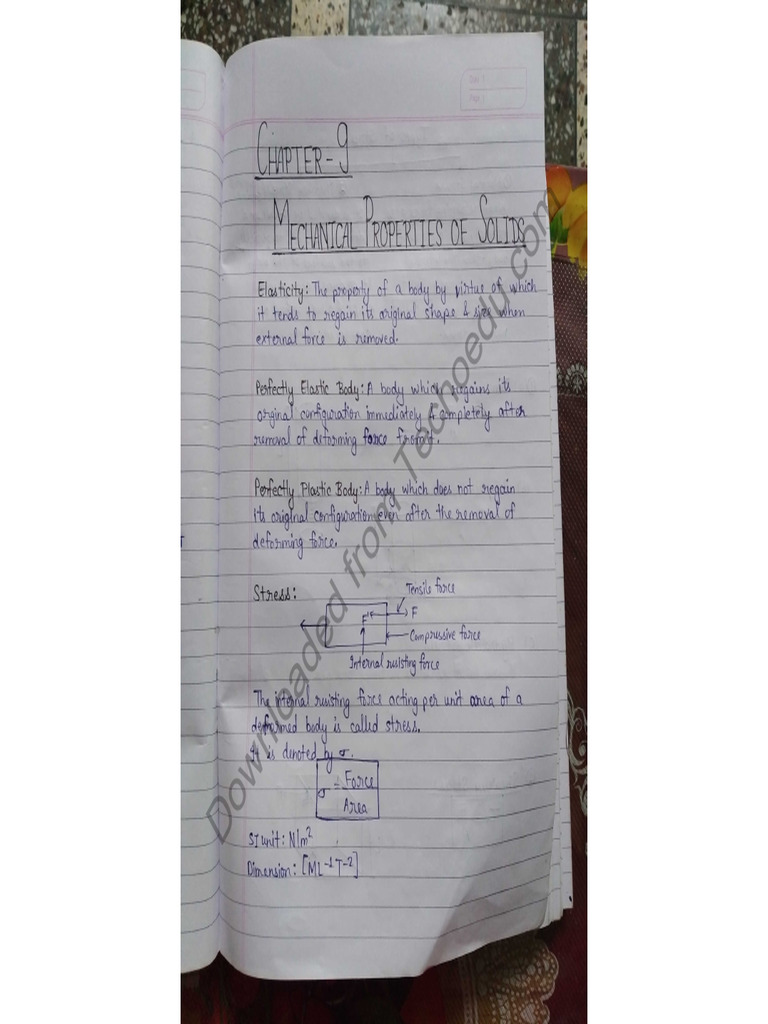 CHAPTER-9
MECHANICAL PROPERTIES OF SOLIDS
Elasticity: The property of a body by virtue of which
it tends to regain its original shape & size when
external force is removed.
Perfectly Elastic Body: A body which regains its
orginal configuration immediately & completely after
removal of deforming force from it.
Perfectly Plastic Body: A body which does not regain
its original configuration even after the removal of
deforming force.
Stress:
Tensile force
F' F
Compressive force
Internal resisting force
The internal resisting force acting per unit area of a
deformed body is called stress.
It is denoted by σ.
σ = Force
Area
SI unit: N/m²
Dimension: [ML⁻¹T⁻²]
Downloaded from Techoedu.com